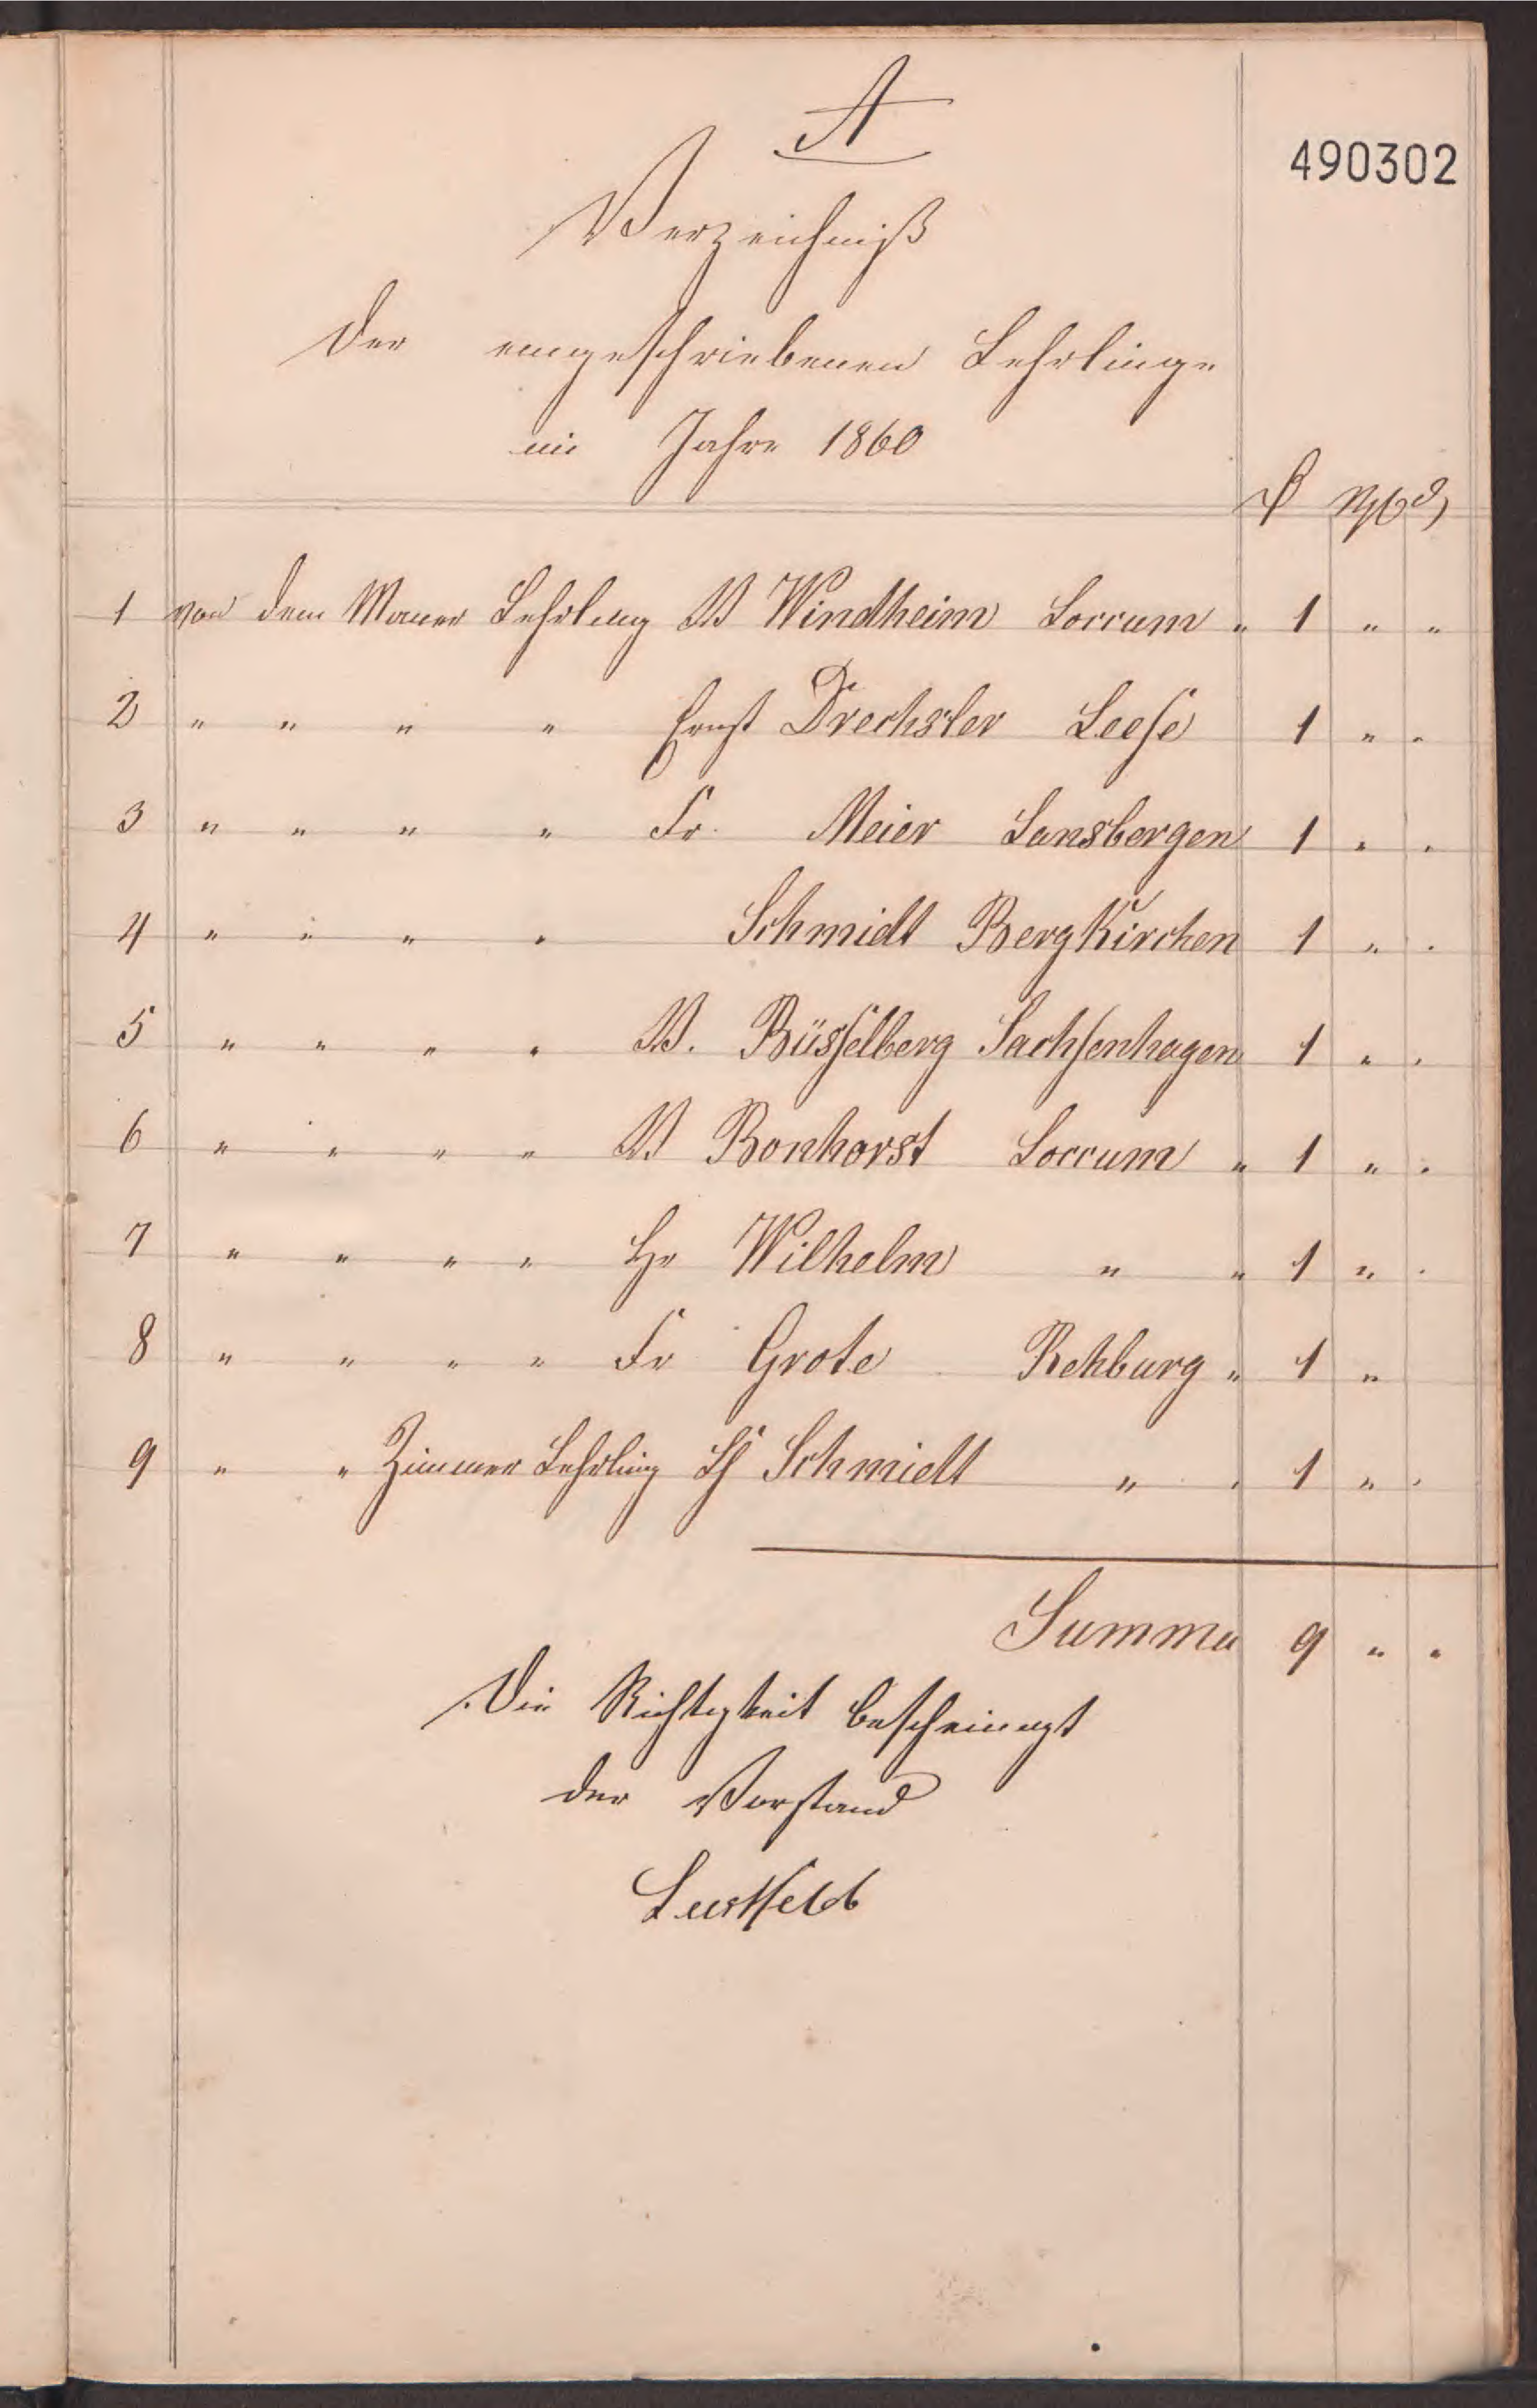 A
490302
Verzeichniß
der eingeschriebenen Lehrlinge
im Jahre 1860
1 von dem Maurer Lehrling W Windheim Loccum " 1 " "
2 " " " " Ernst Drechsler Leese 1 " "
3 " " " " Fr. Meier Lansbergen 1 " "
4 " " " " Schmidt BergKirchen 1 " "
5 " " " " W. Büsselberg Sachsenhagen 1 " "
6 " " " " W Bonhorst Loccum " 1 " "
7 " " " " Hr Wilhelm " " 1 " "
8 " " " " Fr Grote Rehburg " 1 "
9 " " Zimmer Lehrling Schmidt " " 1 " "
Summa 9 " "
Die Richtigkeit bescheinigt
der Vorstand
Lustfeld